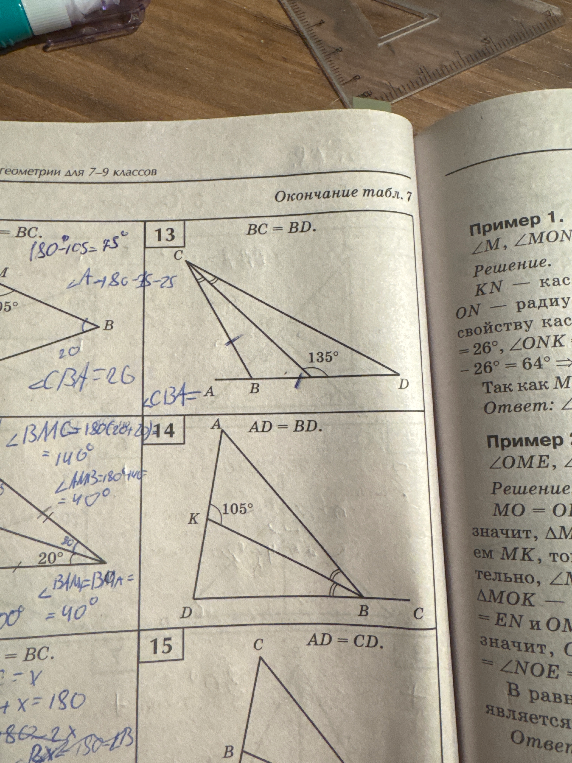 геометрии для 7–9 классов
Окончание табл. 7
= BC.
180°-105=75°
∠A=180-75-25
M
05°
B
20
∠CBA=26
13
BC = BD.
C
135°
A
B
D
∠CBA=
∠BMC=180(20+20)=
= 140°
∠AMB=180-140=
= 40°
20°
20°
= 40°
00°
14
AD = BD.
A
K
105°
D
B
C
= BC.
C = x
+ x = 180
15
AD = CD.
C
B
Пример 1.
∠M, ∠MON
Решение.
KN — кас
ON — радиу
свойству кас
= 26°, ∠ONK =
– 26° = 64° ⇒
Так как M
Ответ: ∠
Пример 2
∠OME, ∠
Решение
MO = O
значит, △M
ем MK, то
тельно, ∠M
△MOK —
= EN и OM
значит, O
= ∠NOE =
В равн
является
Ответ